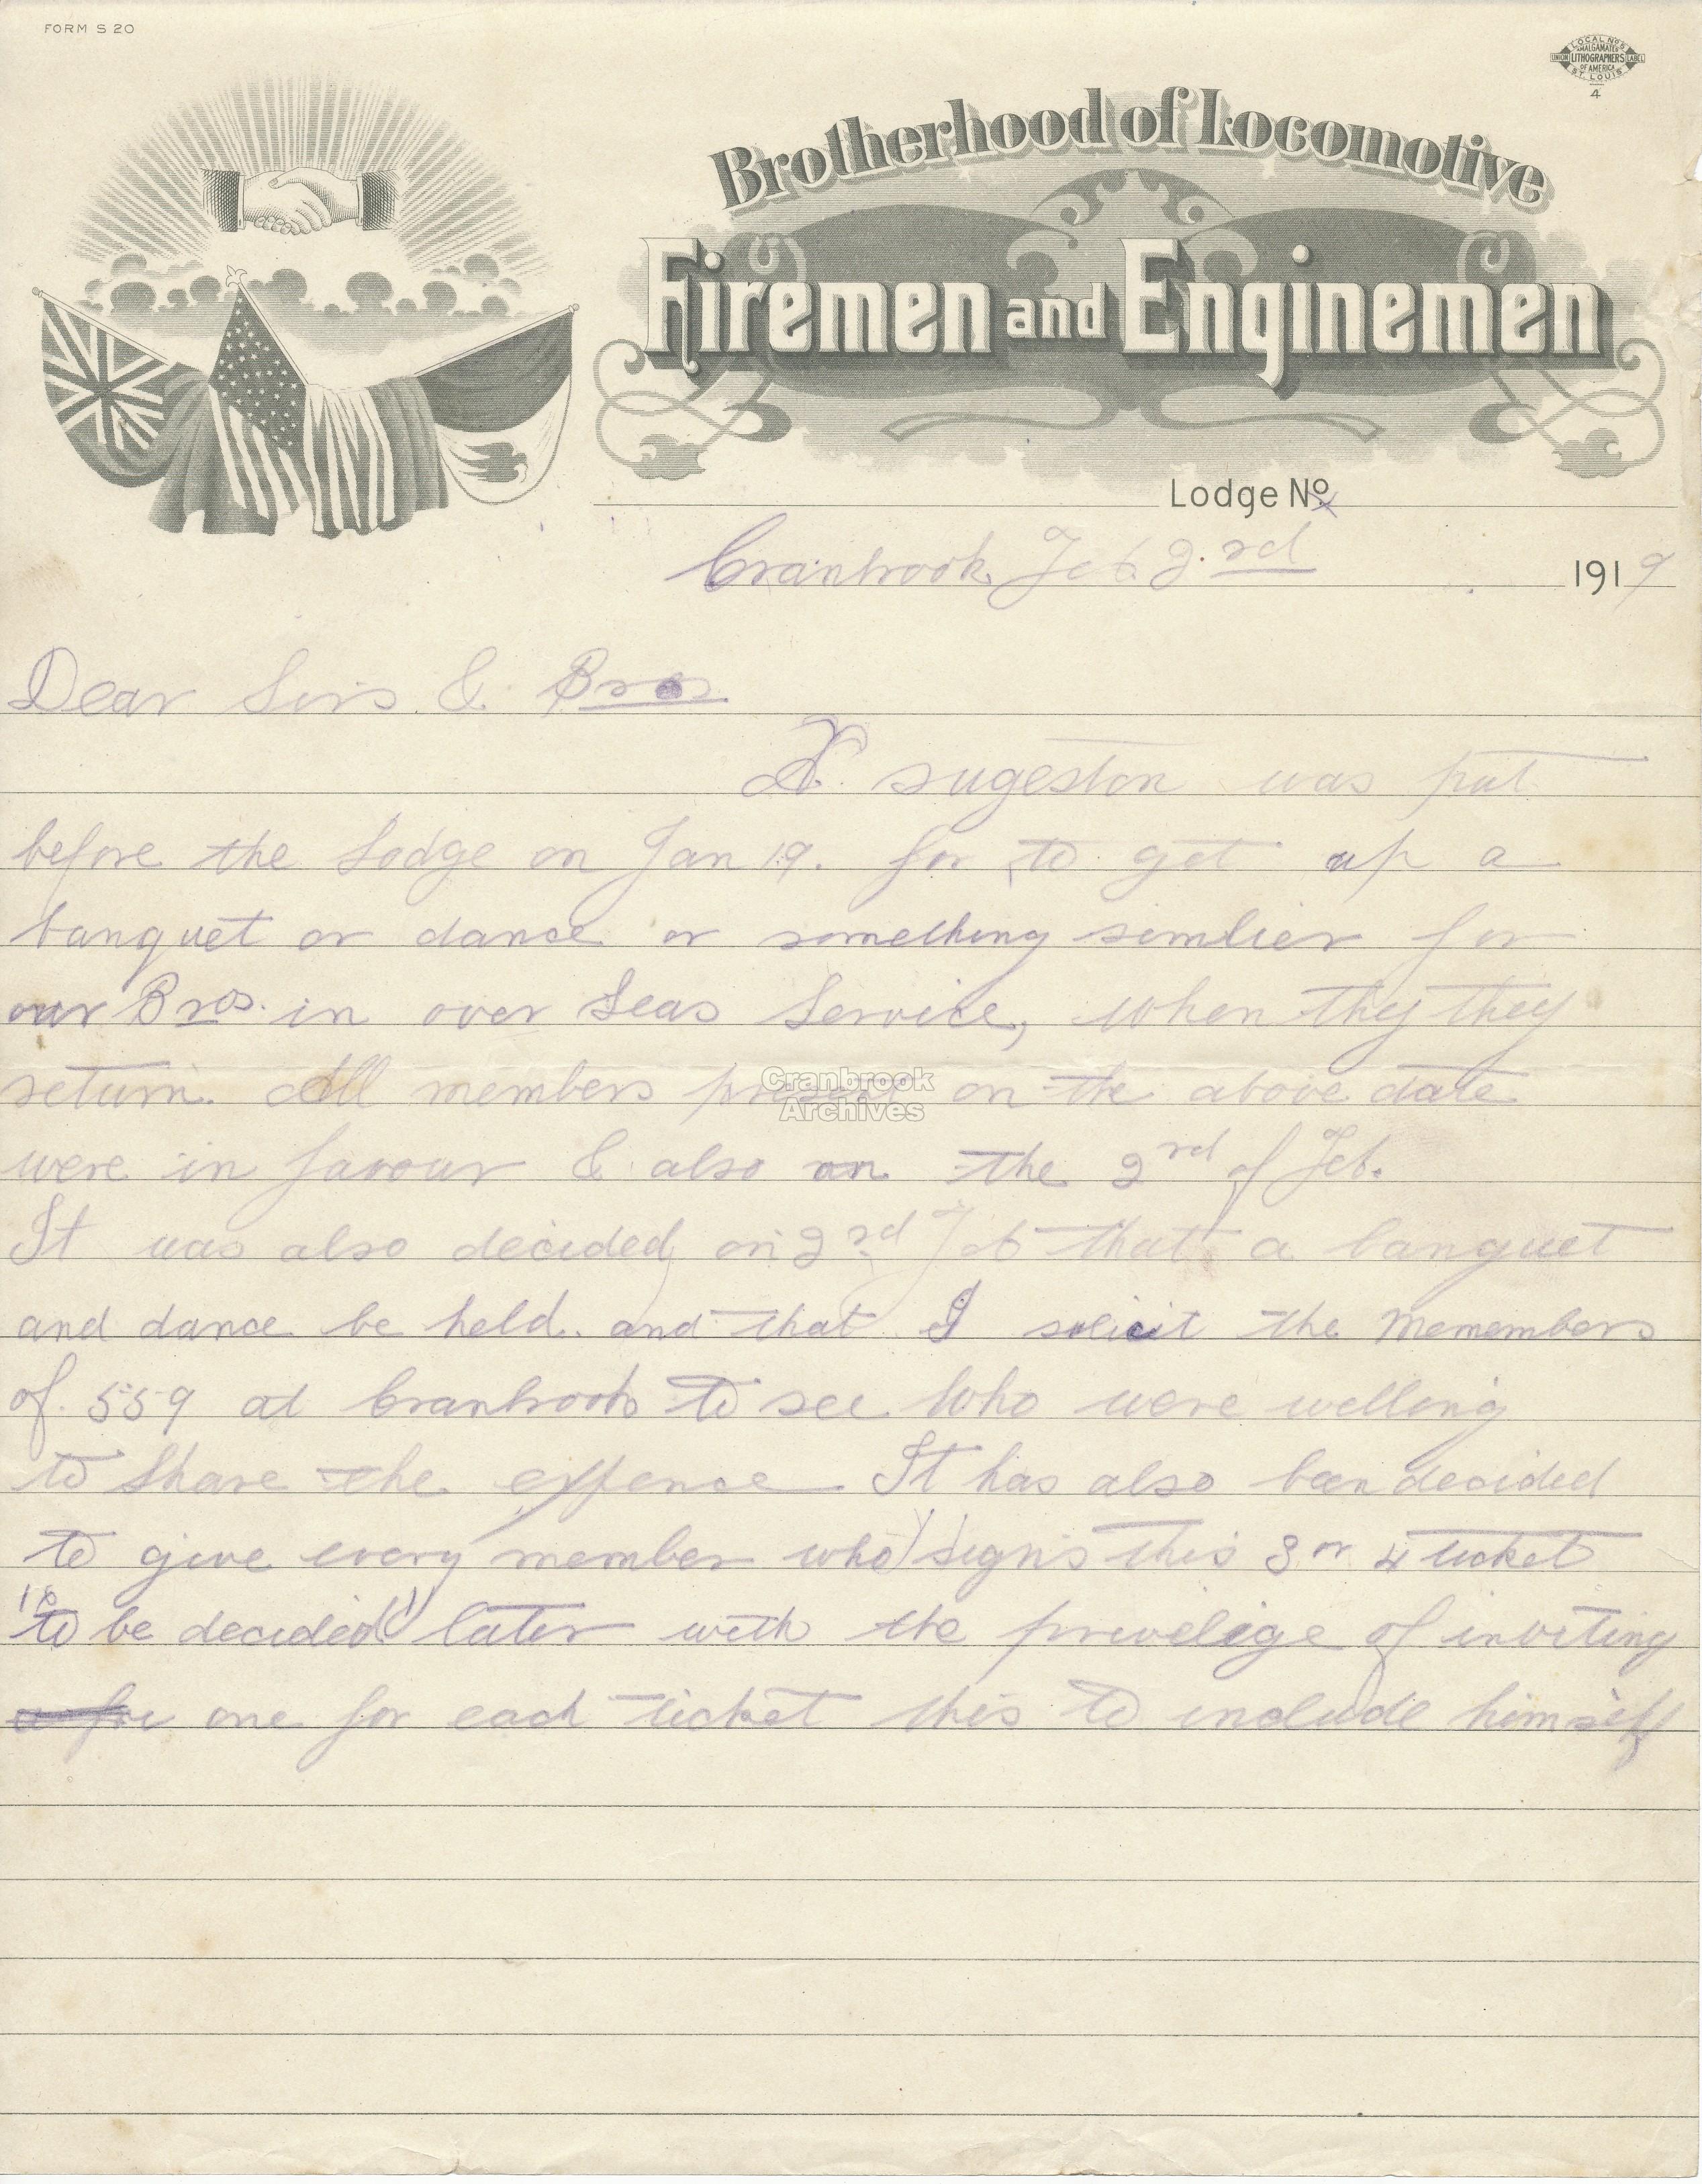 FORM S 20
LOCAL No 5
AMALGAMATED
UNION LITHOGRAPHERS LABEL
OF AMERICA
ST. LOUIS
4
Brotherhood of Locomotive
Firemen and Enginemen
Lodge No
Cranbrook Feb 2.rd 1919
Dear Sirs & Bros
A sugeston was put
before the Lodge on Jan 19. for to get up a
banquet or dance or something simlier for
our Bros. in over Seas Service, when they they
return. All members present on the above date
were in favour & also on the 2rd of Feb.
It was also decided on 2rd Feb that a banquet
and dance be held. and that I solicit the Memembers
of 559 at Cranbrook to see Who were welling
to Share the expence It has also been decided
to give every member who signs this 3 or 4 ticket
"to be decided" later with the privelige of inviting
one for each ticket this to include himself
Cranbrook
Archives